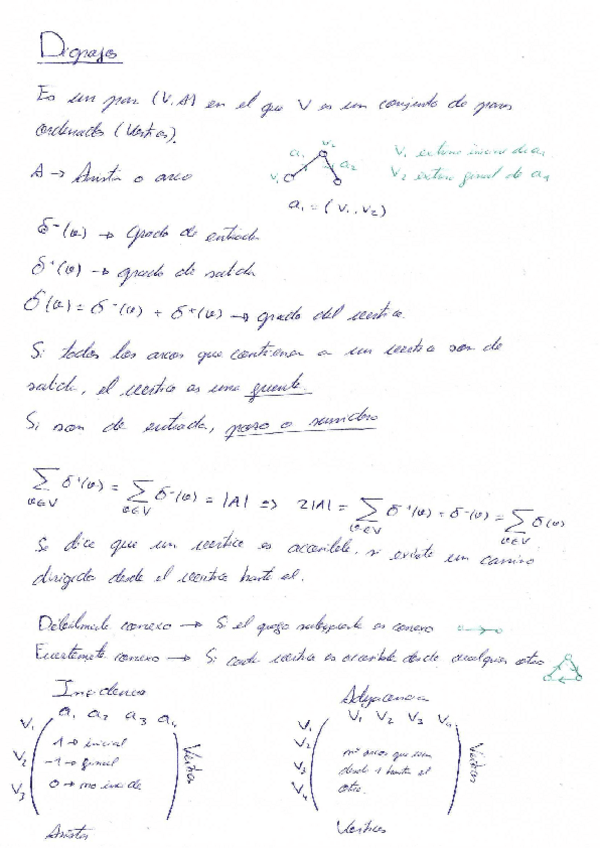 Digrafos
Es un par (V, A) en el que V es un conjunto de pares
ordenados (Vertices).
A → Arista o arco
a₁ v₂ a₂ v₁
V₁ extremo inicial de a₁
V₂ extremo final de a₁
a₁ = (V₁, V₂)
δ⁻(v) → Grado de entrada
δ⁺(v) → grado de salida
δ(v) = δ⁻(v) + δ⁺(v) → grado del vertice.
Si todos los arcos que contienen a un vertice son de
salida, el vertice es una fuente.
Si son de entrada, pozo o sumidero
∑ δ⁺(v) = ∑ δ⁻(v) = |A| ⇒ 2|A| = ∑ δ⁺(v) + δ⁻(v) = ∑ δ(v)
v∈V v∈V v∈V v∈V
Se dice que un vertice es accesible, si existe un camino
dirigido desde el vertice hasta el.
Débilmente conexo → Si el grafo subyacente es conexo
Fuertemente conexo → Si cada vertice es accesible desde cualquier otro
Incidencia
a₁ a₂ a₃ a₄
V₁ 1 → inicial
V₂ -1 → final
V₃ 0 → no incide
Vertices
Aristas
Adyacencia
V₁ V₂ V₃ V₄
V₁
V₂ nº arcos que van
V₃ desde 1 hasta el
V₄ otro.
Vertices
Vertices